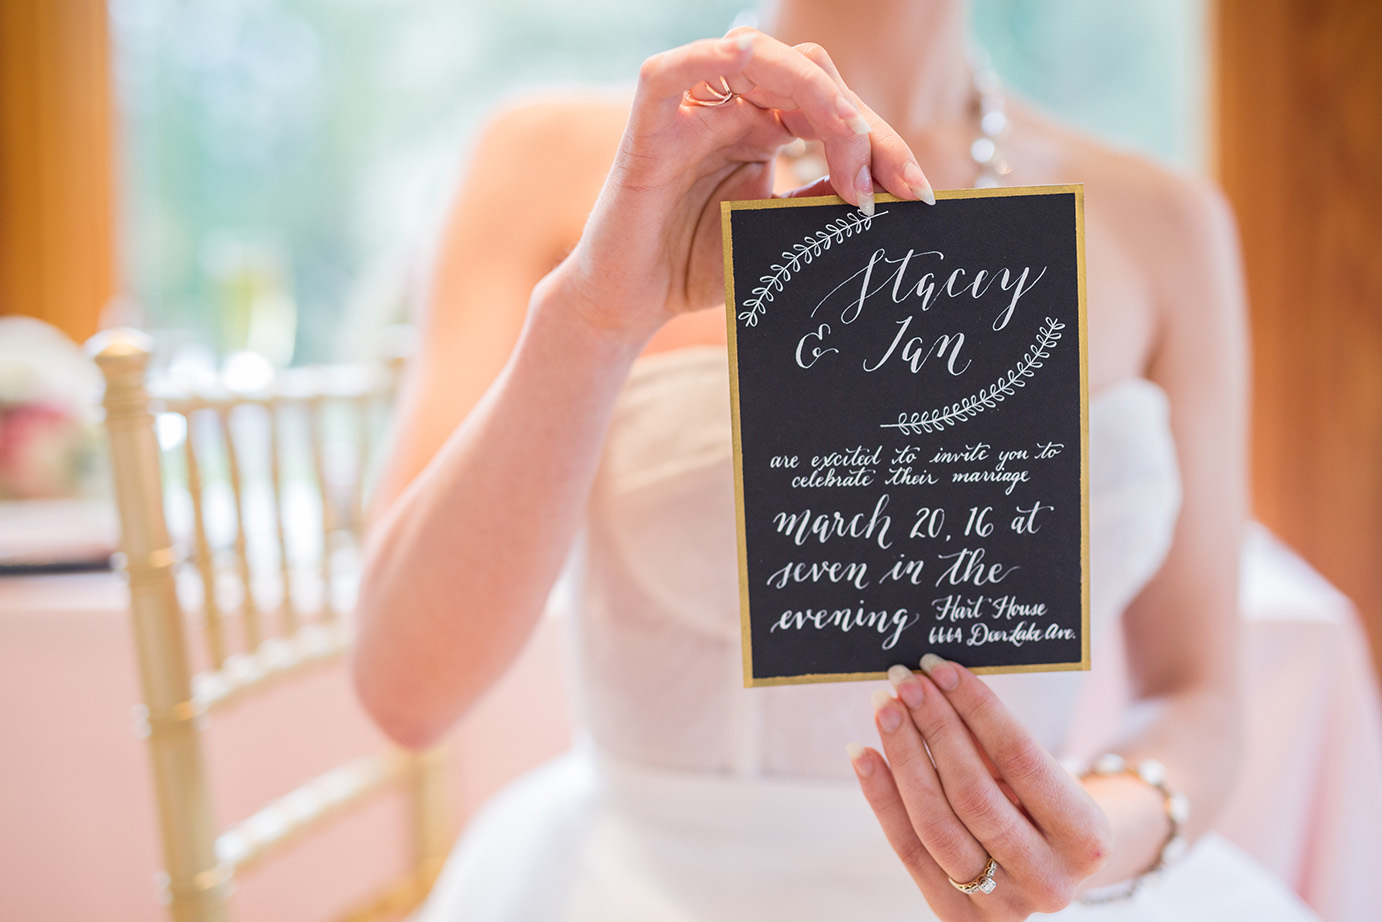 Stacey
& Ian
are excited to invite you to
celebrate their marriage
march 20, 16 at
seven in the
evening Hart House
6664 Deer Lake Ave.